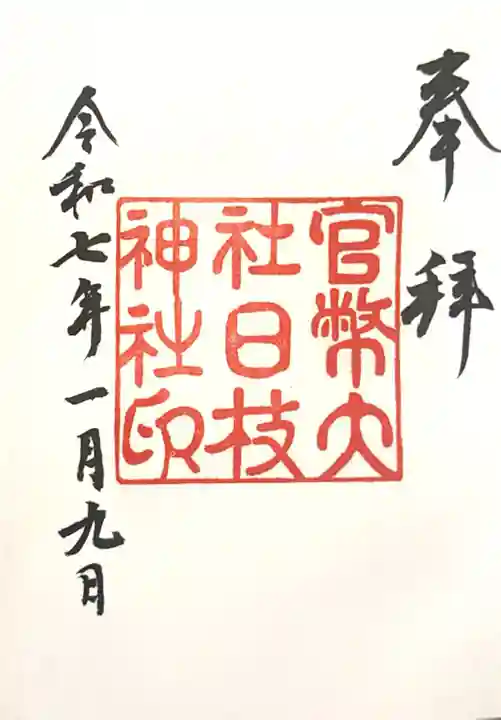 奉拝
官幣大
社日枝
神社印
令和七年一月九日